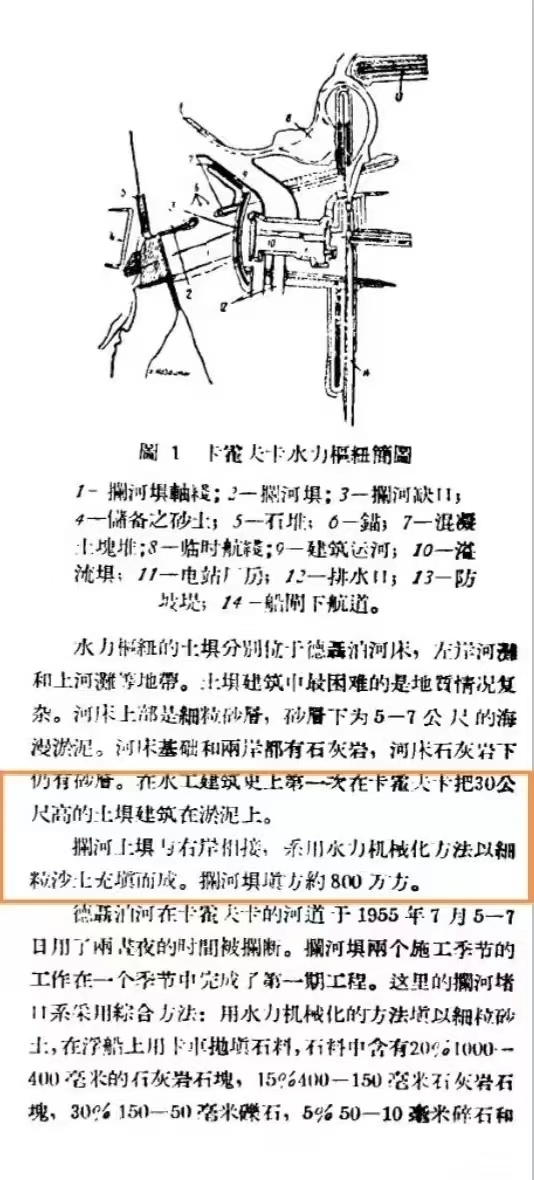 圖 1 卡霍夫卡水力樞紐簡圖
1—攔河垻軸綫；2—攔河垻；3—攔河缺口；
4—儲备之砂土；5—石堆；6—錨；7—混凝
土塊堆；8—临时航綫；9—建筑运河；10—溢
流垻；11—电站厂房；12—排水口；13—防
坡堤；14—船閘下航道。
水力樞紐的土垻分別位于德聶泊河床，左岸河灘
和上河灘等地帶。土垻建筑中最困难的是地質情况复
杂。河床上部是細粒砂層，砂層下为5—7公尺的海
漫淤泥。河床基础和兩岸都有石灰岩，河床石灰岩下
仍有砂層。在水工建筑史上第一次在卡霍夫卡把30公
尺高的土垻建筑在淤泥上。
攔河土垻与右岸相接，系用水力机械化方法以細
粒沙土充塡而成。攔河垻塡方約800万方。
德聶泊河在卡霍夫卡的河道于1955年7月5—7
日用了兩晝夜的时間被攔断。攔河垻兩个施工季节的
工作在一个季节中完成了第一期工程。这里的攔河堵
口系采用綜合方法：用水力机械化的方法塡以細粒砂
土，在浮船上用卡車拋塡石料，石料中含有20%1000—
400毫米的石灰岩石塊，15%400—150毫米石灰岩石
塊，30%150—50毫米礫石，5%50—10毫米碎石和
1
2
3
4
5
6
7
8
9
10
12
14